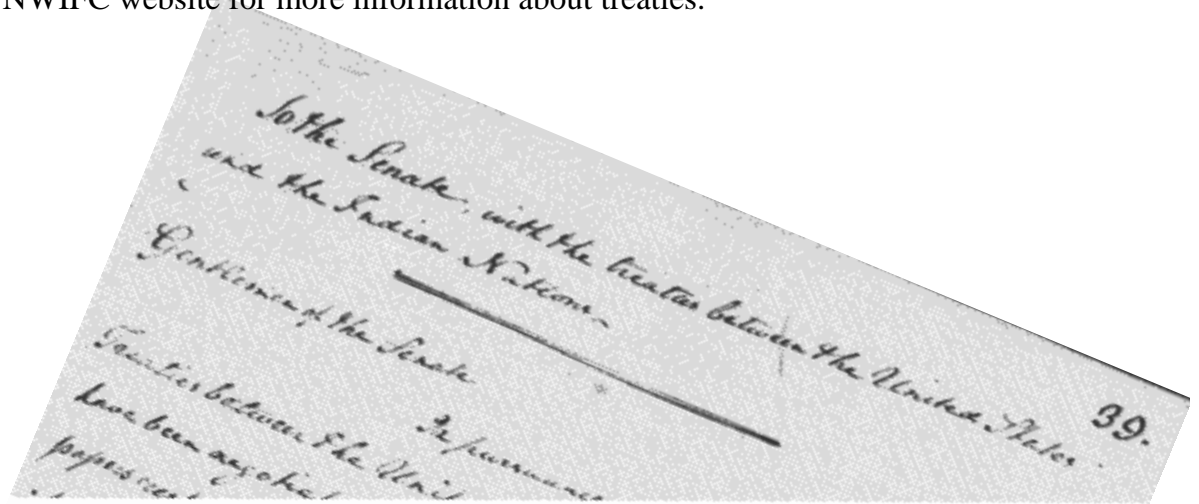 NWIFC website for more information about treaties.
39.
To the Senate, with the treaties between the United States
and the Indian Nations
Gentlemen of the Senate
In pursuance
Treaties between the Unit
have been negotiat
papers